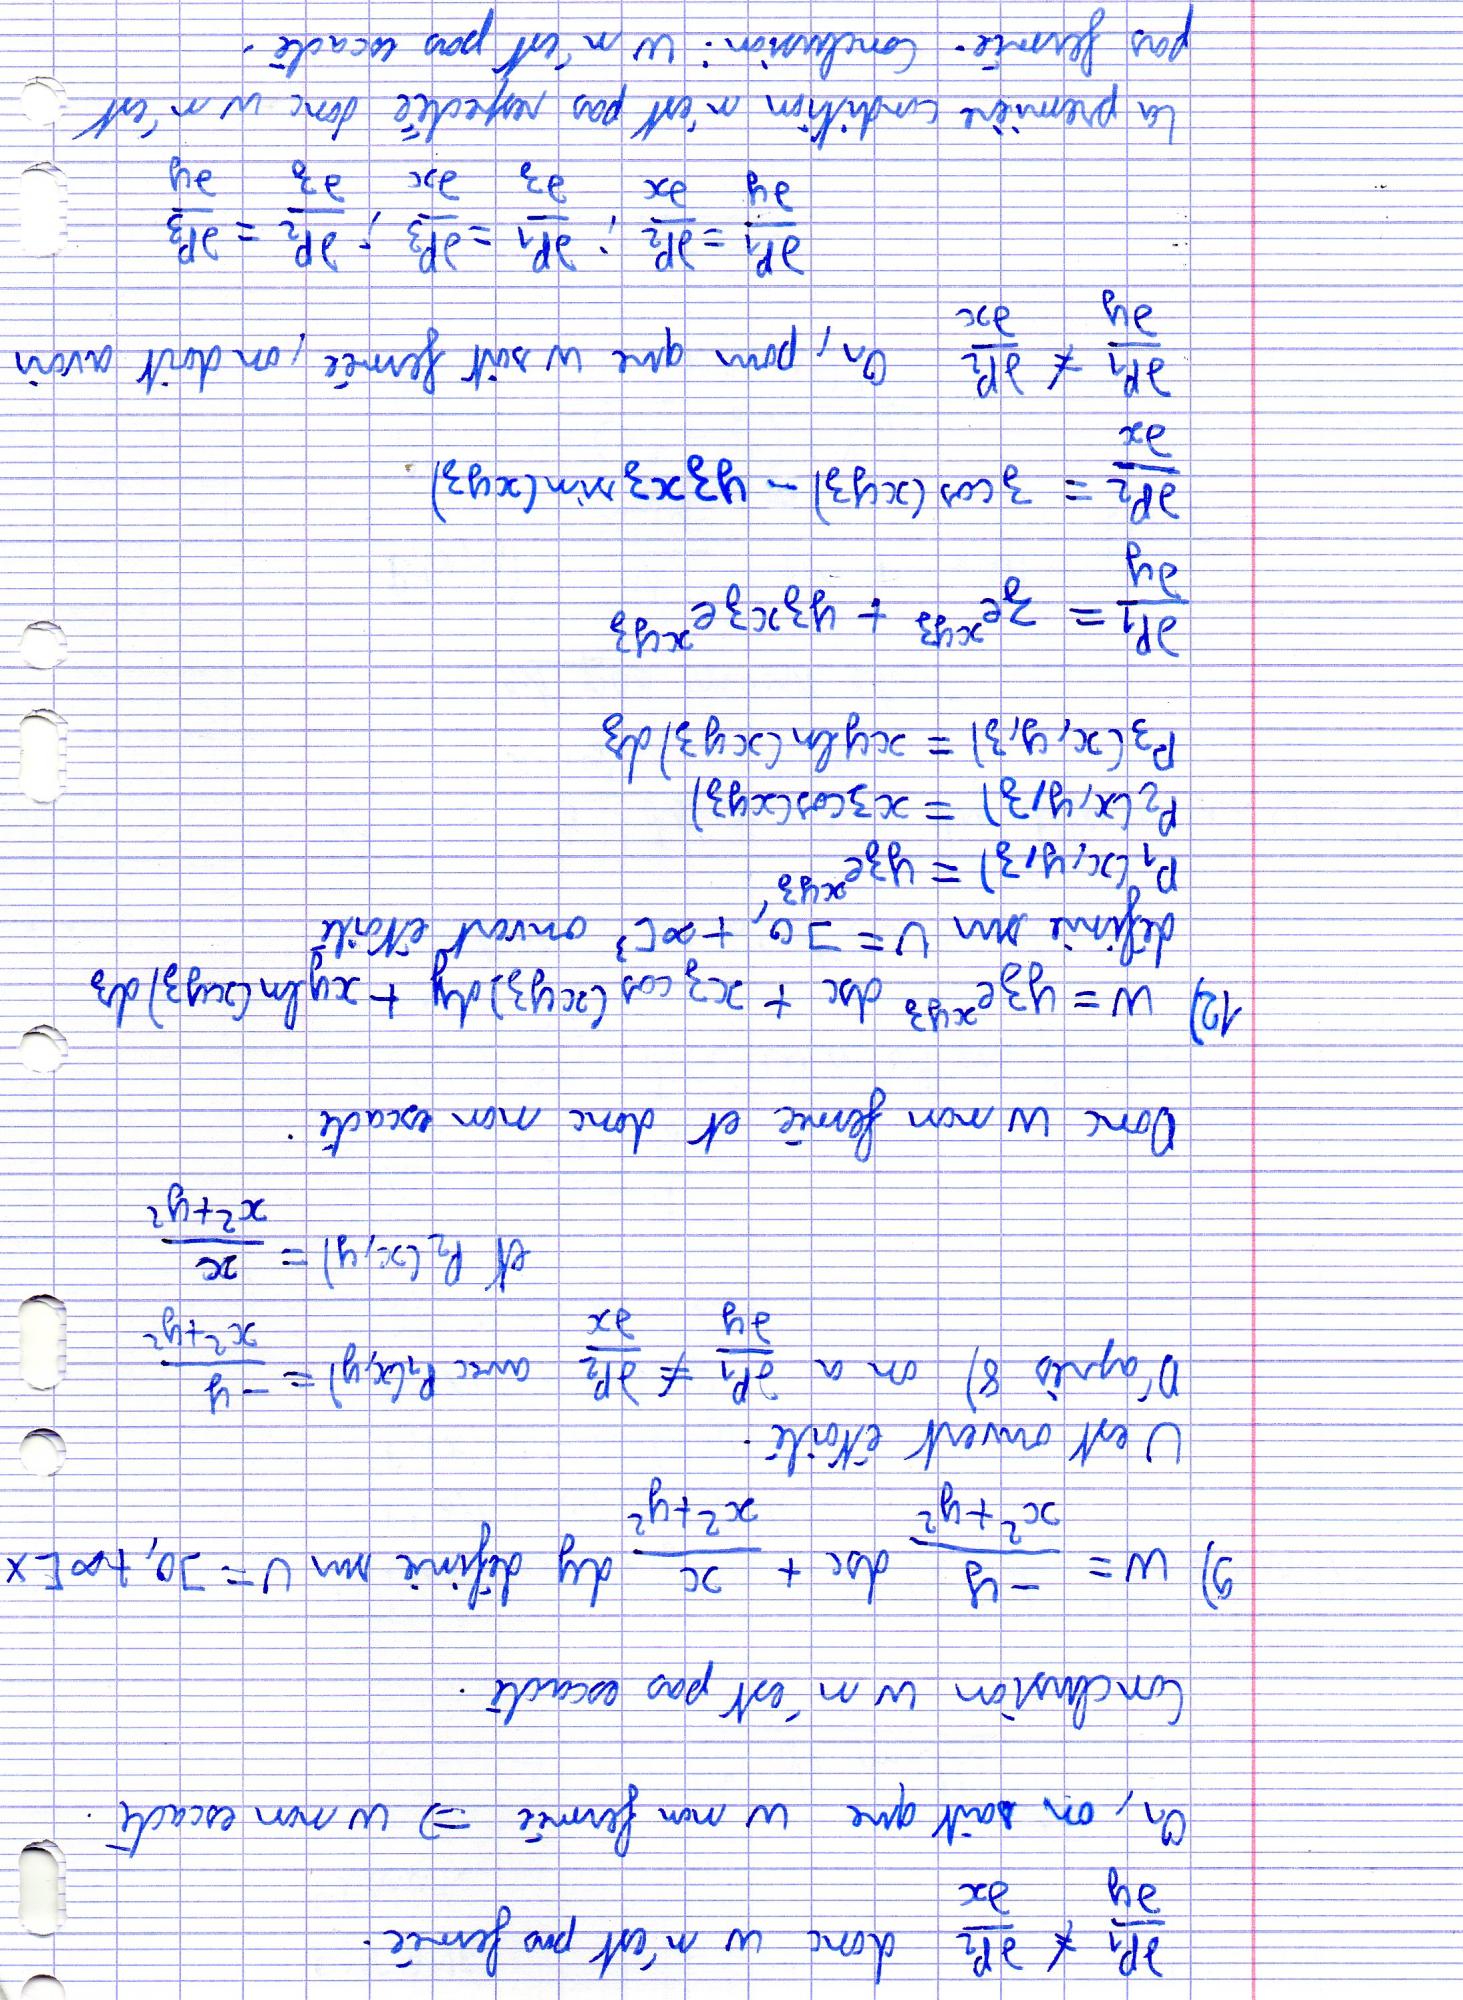 ∂P1/∂y ≠ ∂P2/∂x donc w n'est pas fermée.
Or, on sait que w non fermée ⇒ w non escacte.
Conclusion w n'est pas escacte.
9) w = -y/(x²+y²) dx + x/(x²+y²) dy définie sur U = ]0,+∞[ ×
U est ouvert étoilé.
D'après 8) on a ∂P1/∂y ≠ ∂P2/∂x avec P1(x,y) = -y/(x²+y²)
et P2(x,y) = x/(x²+y²)
Donc w non fermée et donc non escacte.
12) w = yze^{xyz} dx + xz cos(xyz) dy + xy ln(xyz) dz
définie sur U = ]0,+∞[³ ouvert étoilé
P1(x,y,z) = yze^{xyz},
P2(x,y,z) = xz cos(xyz)
P3(x,y,z) = xy ln(xyz) dz
∂P1/∂y = ze^{xyz} + yzxze^{xyz}
∂P2/∂x = z cos(xyz) - yzxz sin(xyz)
∂P1/∂y ≠ ∂P2/∂x Or, pour que w soit fermée, on doit avoir
∂P1/∂y = ∂P2/∂x ; ∂P1/∂z = ∂P3/∂x ; ∂P2/∂z = ∂P3/∂y
La première condition n'est pas respectée donc w n'est
pas fermée. Conclusion : w n'est pas escacte.